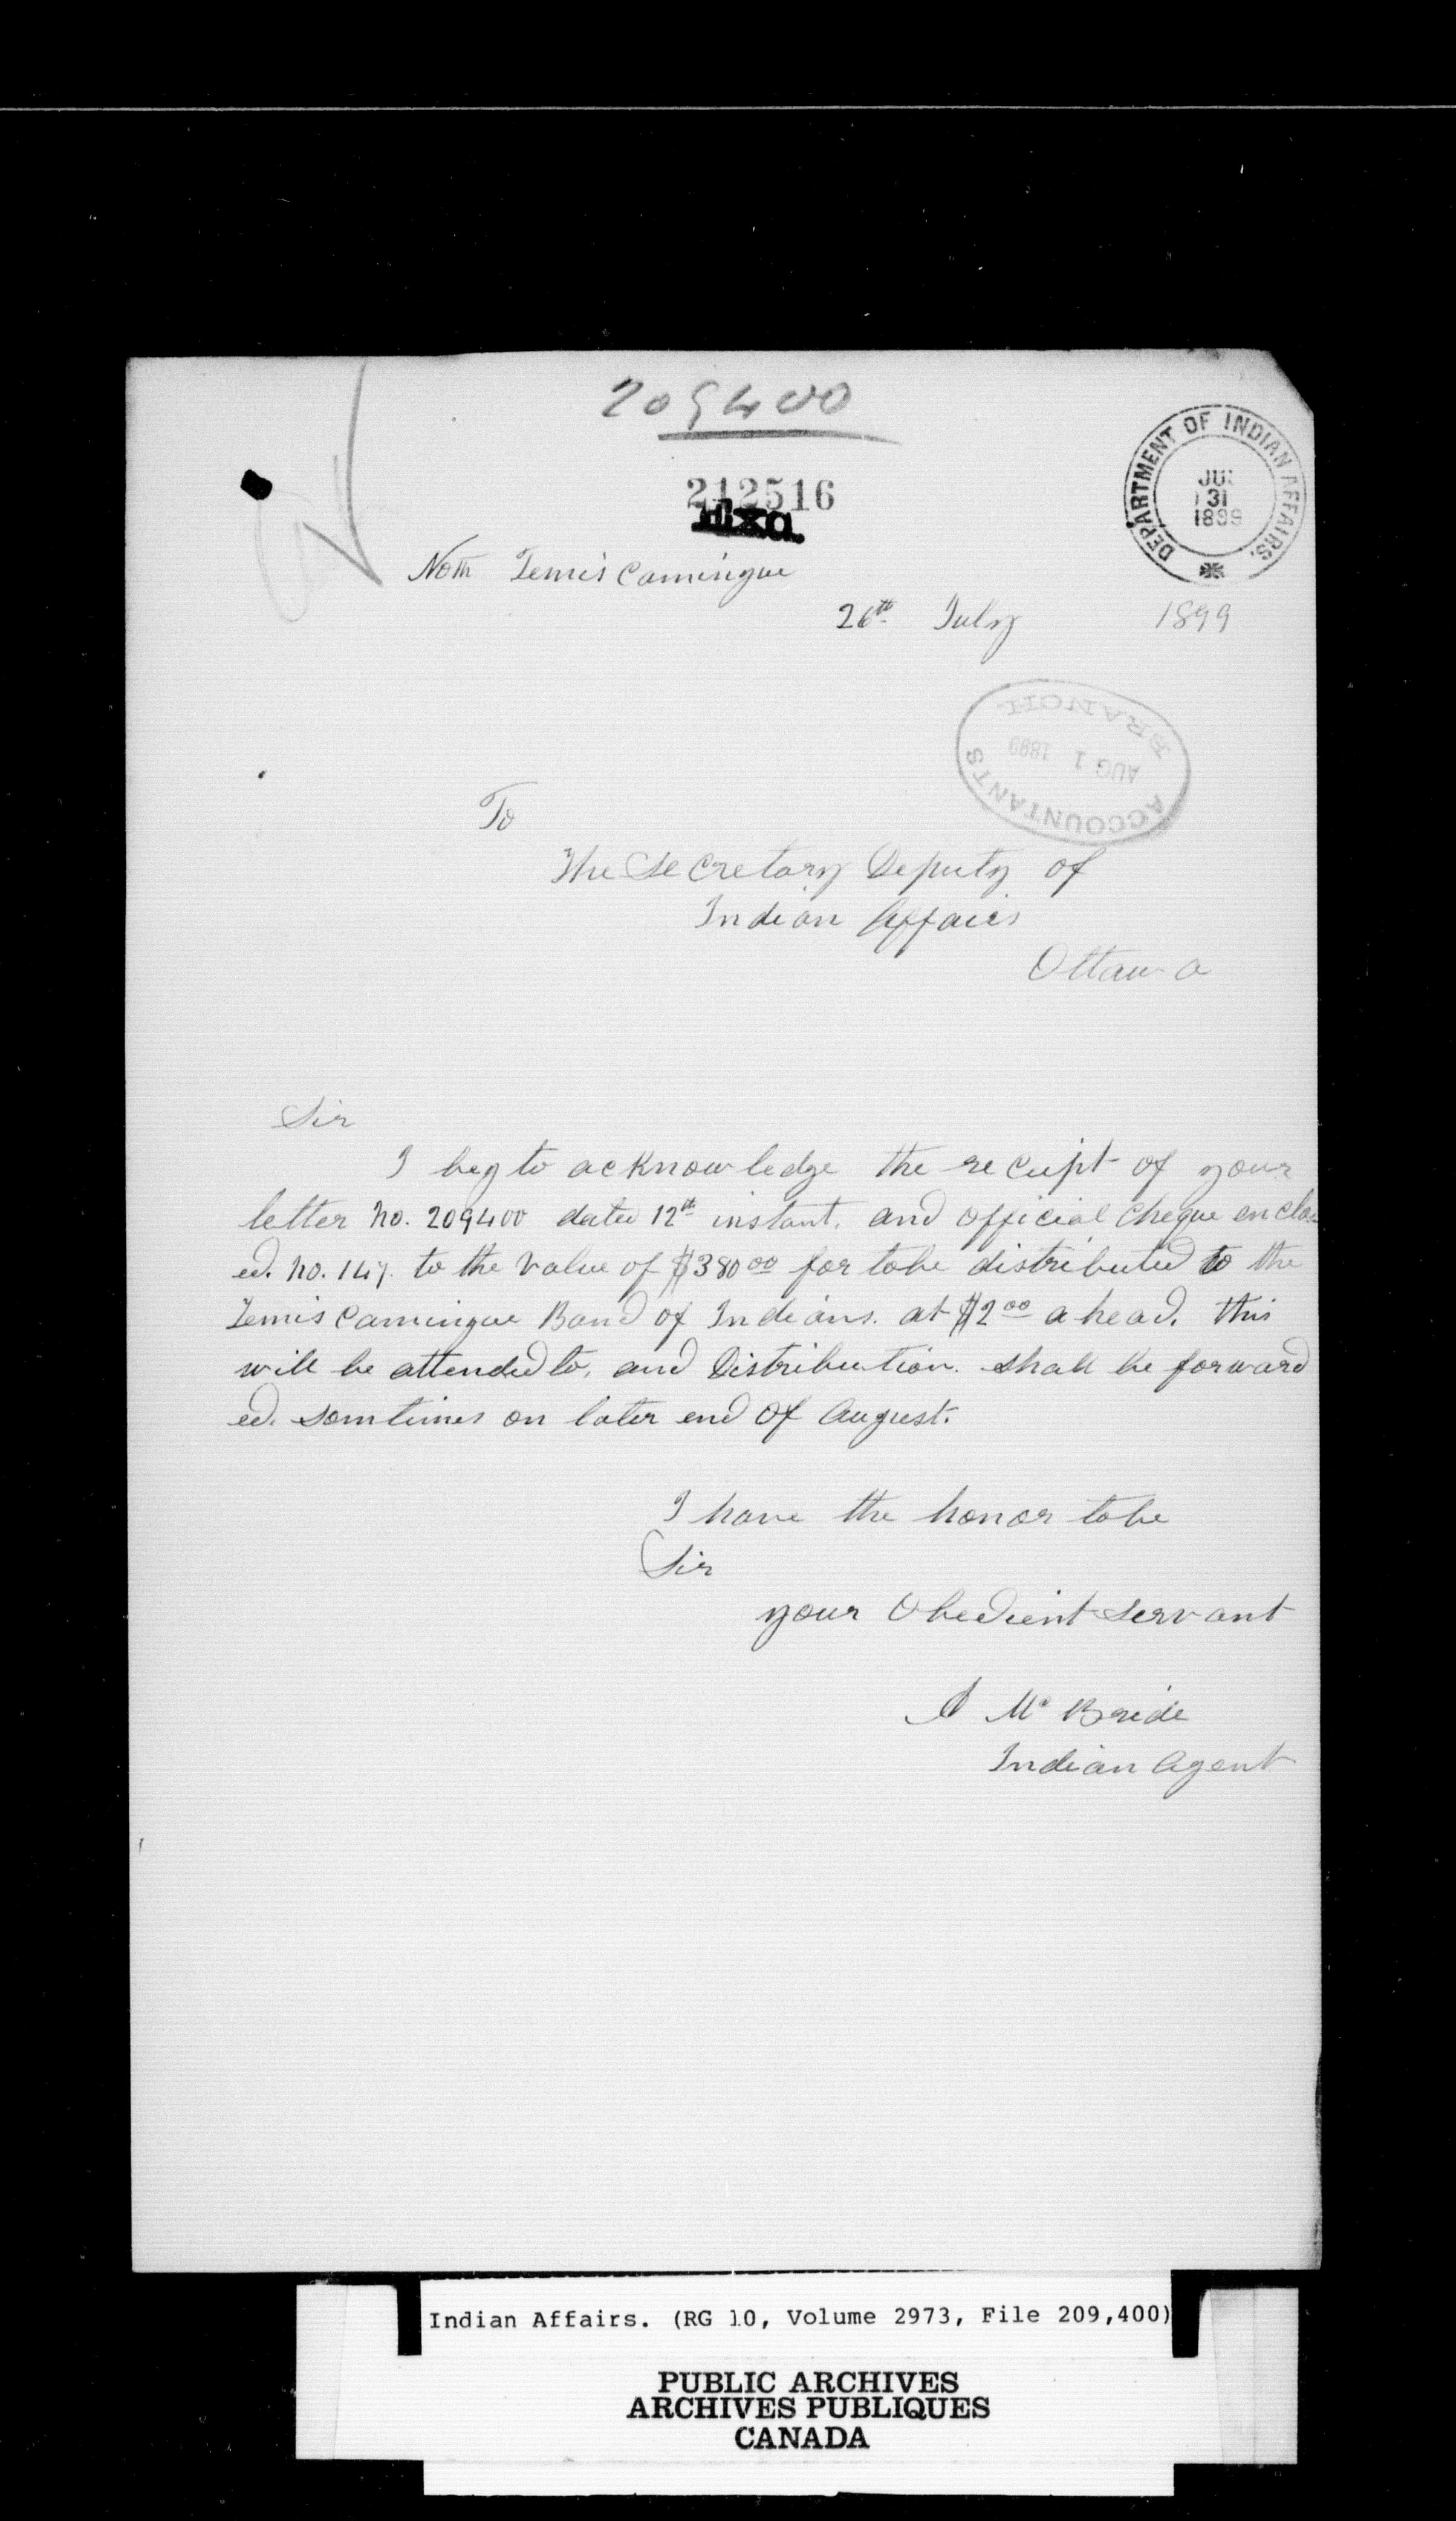 209400
212516
DEPARTMENT OF INDIAN AFFAIRS.
31
1899
North Temiscamingue
26th July 1899
ACCOUNTANTS BRANCH.
AUG 1 1899
To
The Secretary Deputy of
Indian Affairs
Ottawa
Sir
I beg to acknowledge the receipt of your
letter No. 209400 dated 12th instant, and official Cheque enclos
ed. No. 147. to the value of $380 00 for tobe distributed to the
Temiscamingue Band of Indians. at $2 00 a head. this
will be attended to, and Distribution. shall be forward
ed. somtimes on later end of August.
I have the honor tobe
Sir
your Obedient servant
A Mc Bride
Indian Agent
Indian Affairs. (RG 10, Volume 2973, File 209,400)
PUBLIC ARCHIVES
ARCHIVES PUBLIQUES
CANADA